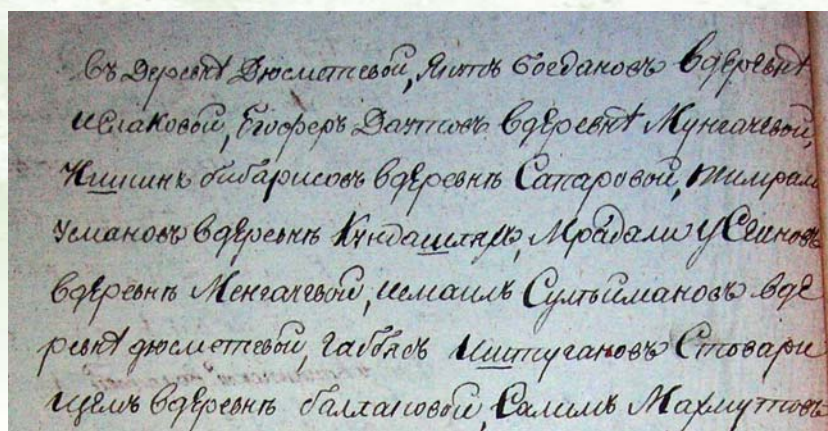 въ деревнѣ Дюсметевой, Якупъ Богдановъ вдеревнѣ
Исляковой, Ягоферъ Даутовъ вдеревнѣ Мунгачевой,
Ишинк бибарисовъ вдеревнѣ Сатаровой, тимрали
Усмановъ вдеревнѣ Кундашляръ, Мрадали Усеиновъ
вдеревнѣ Менгачевой, исмаилъ Сулѣймановъ вде
ревнѣ дюсметевой, габбясъ Иштугановъ Стовари
щемъ вдеревнѣ балтаковой, Салимъ Махмутовъ